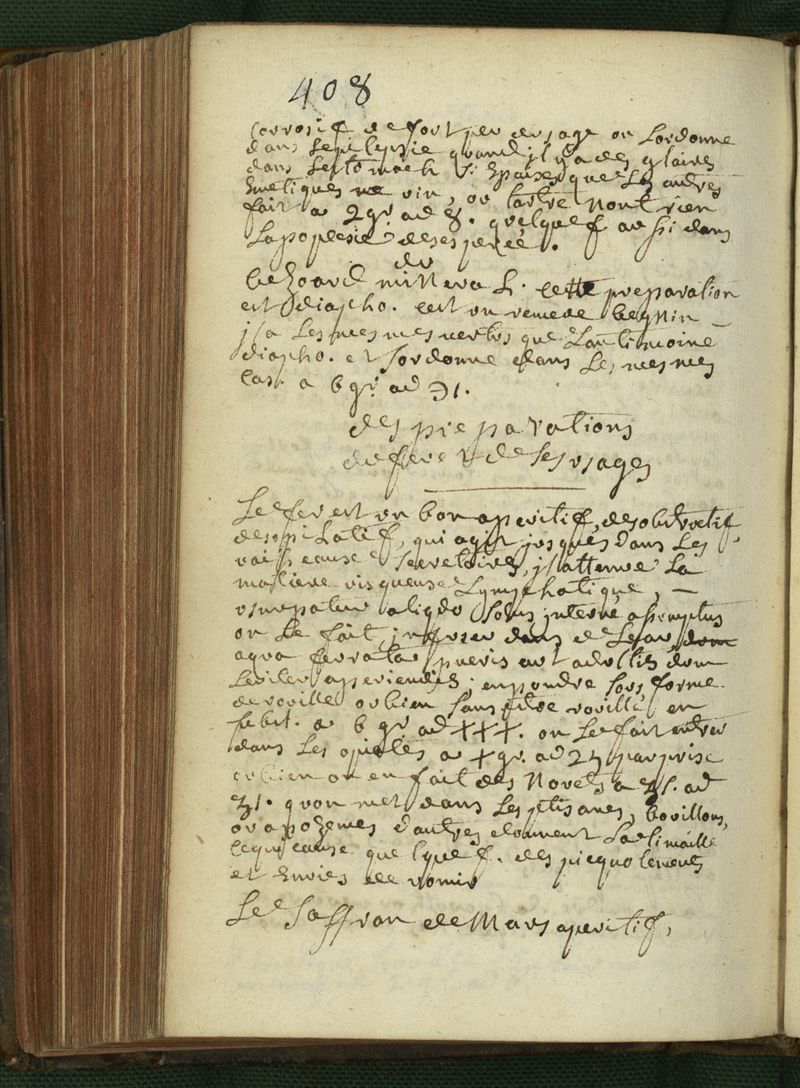 408
Corrosif de fort peu dusage on Lordonne
dans Lepilepsie quand il y a des glaires
dans Lestomach si Epaisses que Les autres
Emetiques ne vin, ou tartre nont rien
fait a 2 gr. ad 8. quelquef. ad
Lapoplesie desesperée.
du
bezoard mineral. cette preparation
est diapho. cest un remede begnin
il a Les mesmes vertus que Lantimoine
diapho. et sordonne dans Les mesmes
cas. a 6 gr. ad ℈1.
des preparations
de fer et de ses usages
Le fer est un bon aperitif, desobstructif
desopilatif, qui agit jusques dans Les
vaisseaux secretoires, il attenue La
matiere visqueuse Lymphatique, —
usurpatur aliqdo solus interne assumptus
on Le fait infuser dans de Leau
aqua ferrata pueris aut adultis
aperiendis; en poudre sous forme
de rouille ou bien sans estre rouillé en
subst. a 6 gr. ad +++. on Le fait entrer
dans Les opiates a + gr. ad par prise
ou bien on en fait des Nouets a ad
℥1. quon met dans Les ptisanes, bouillons,
ou apozemes dautres donnent La limaille
ce qui cause quelquef. des picquotements
et Envies de vomir
Le Saffran de Mars aperitif,